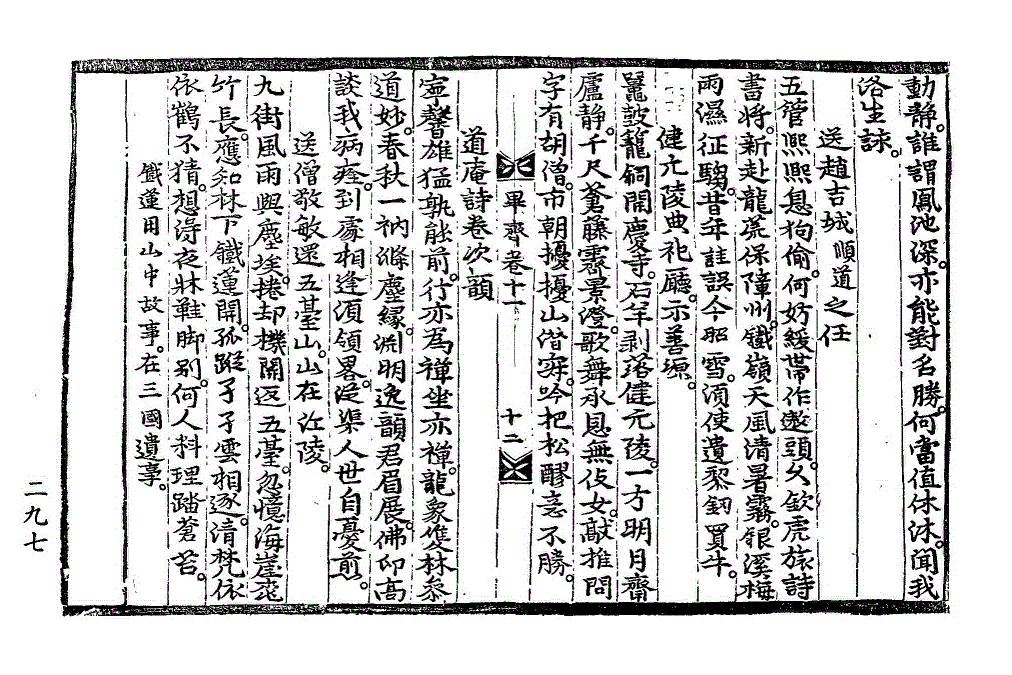 動靜。誰謂鳳池深。亦能對名勝。何當值休沐。聞我
洛生詠。
送趙吉城順道之任
五管熙熙息狗偷。何妨緩帶作遨頭。久欽虎旅詩
書將。新赴龍荒保障州。鐵嶺天風清暑霧。銀溪梅
雨濕征騶。昔年詿誤今昭雪。須使遺黎釰買牛。
健元陵典祀廳。示善源。
鼉鼓籠銅開慶寺。石羊剥落健元陵。一方明月齋
廬靜。千尺蒼藤霽景澄。歌舞承恩無伎女。敲推問
字有胡僧。市朝擾擾山偕寂。吟把松醪意不勝。
畢齋卷十一 十二
道庵詩卷次韻
寧馨雄猛孰能前。行亦為禪坐亦禪。龍象雙林參
道妙。春秋一衲滌塵緣。淵明逸韻君眉展。佛卬高
談我病痊。到處相逢須領畧。從渠人世自憂煎。
送僧敬敏還五臺山。山在江陵。
九街風雨與塵埃。捲却機關返五臺。忽憶海崖苽
竹長。應知林下鐵蓮開。孤蹤孑孑雲相逐。清梵依
依鶴不猜。想淂夜牀鞋脚别。何人料理踏蒼苔。
鐵蓮用山中故事。在三國遺事。
二九七